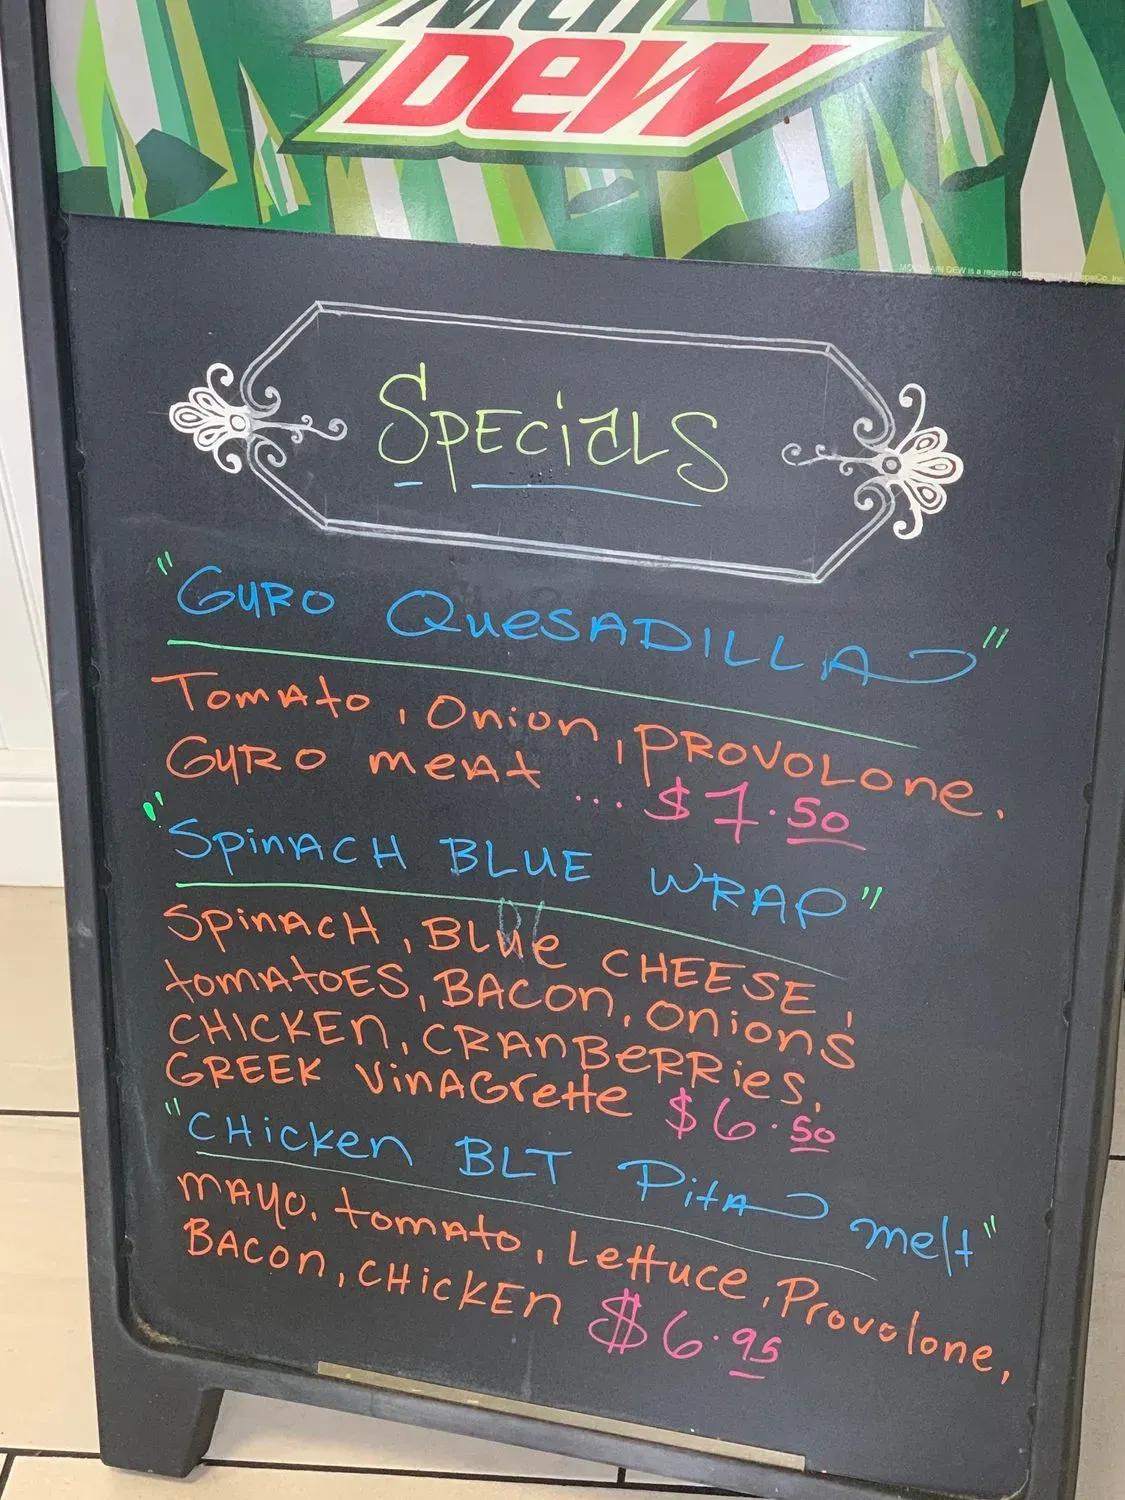 Mtn
Dew
MOUNTAIN DEW is a registered trademark of PepsiCo, Inc.
Specials
"Gyro Quesadilla"
Tomato, Onion, Provolone.
Gyro meat ... $7.50
"Spinach Blue Wrap"
Spinach, Blue Cheese,
tomatoes, Bacon, Onions
Chicken, Cranberries,
Greek Vinagrette $6.50
"Chicken BLT Pita melt"
mayo. tomato, Lettuce, Provolone,
Bacon, Chicken $6.95